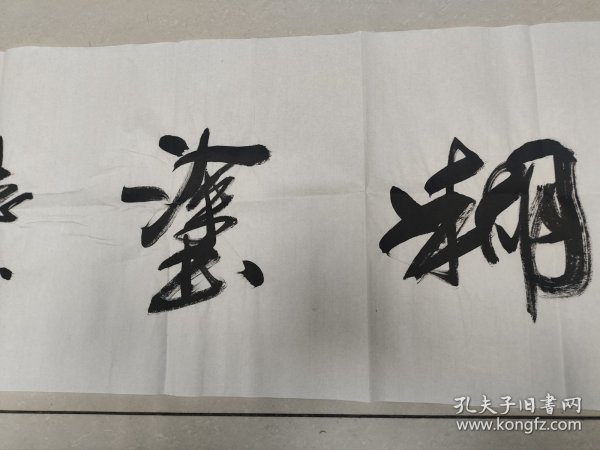 糊塗
孔夫子旧书网
www.kongfz.com